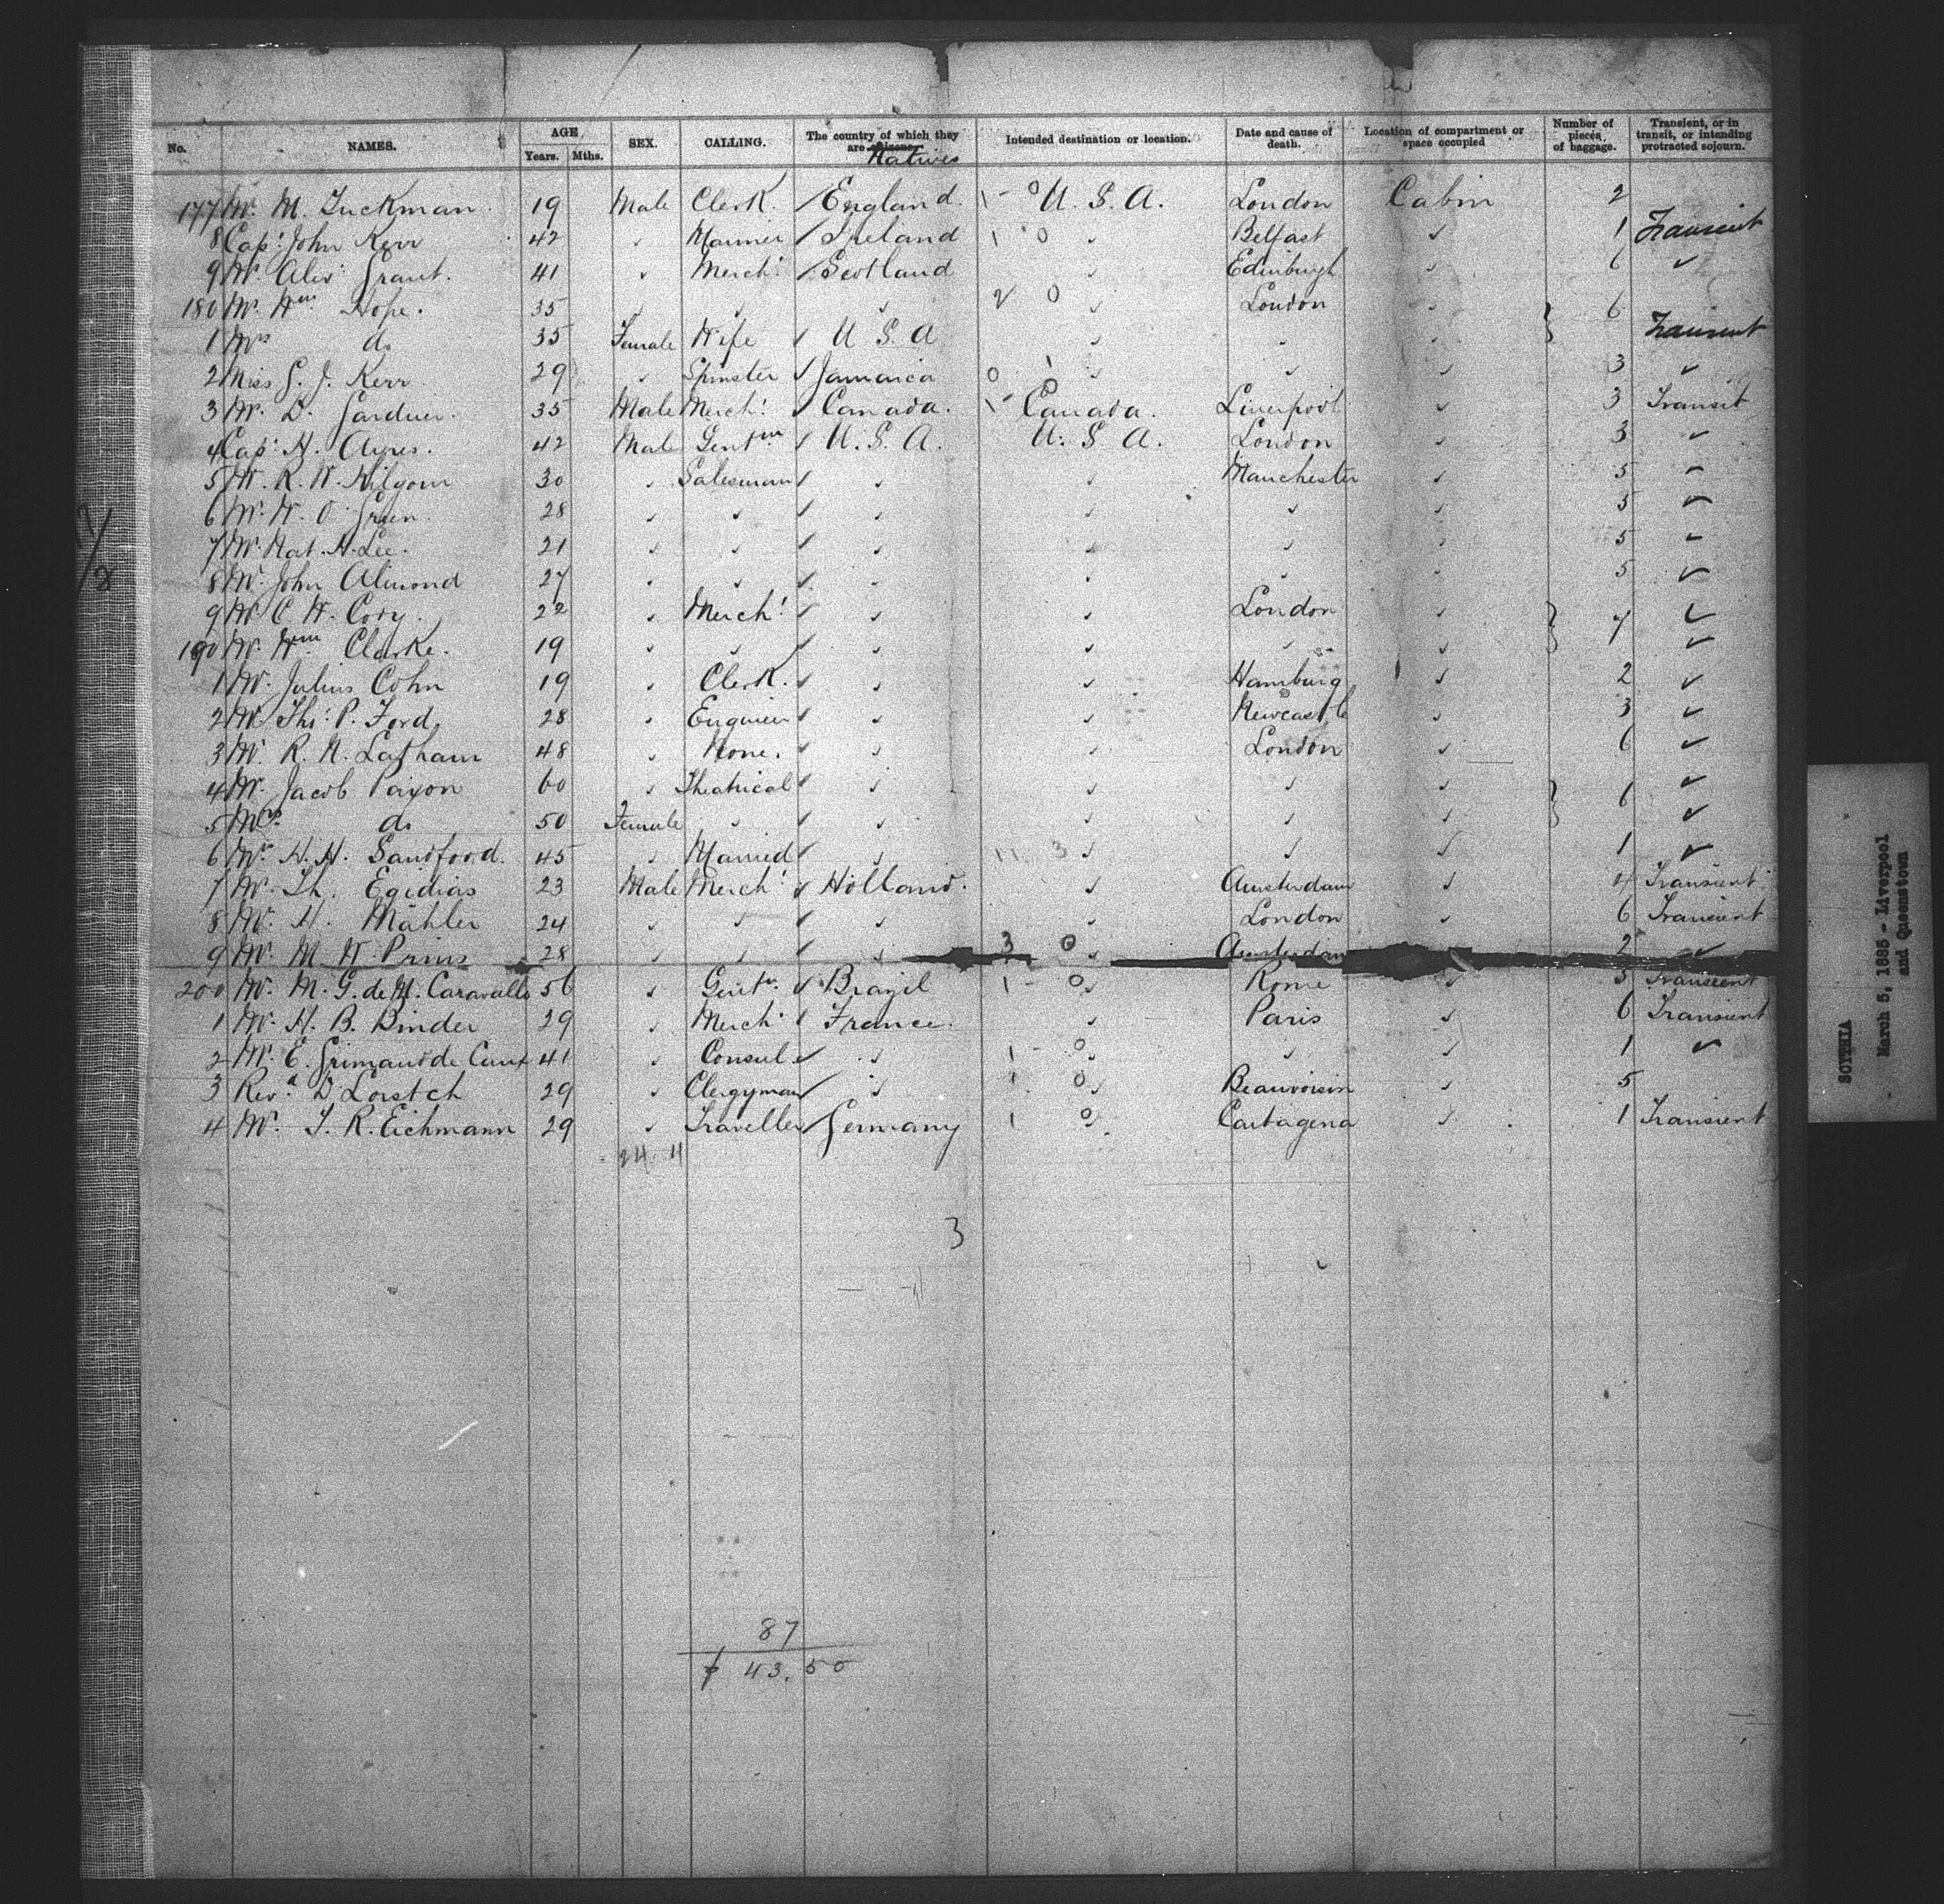 No. NAMES. AGE Years. Mths. SEX. CALLING. The country of which they are citizens Natives Intended destination or location. Date and cause of death. Location of compartment or space occupied Number of pieces of baggage. Transient, or in transit, or intending protracted sojourn.
177 Mr. M. Tuckman 19 Male Clerk. / England. 1 - 0 U. S. A. London Cabin 2
8 Capt. John Kerr 42 ✓ Mariner / Ireland 1 0 ✓ Belfast ✓ 1 Transient
9 Mr. Alexr. Grant. 41 ✓ Mercht. / Scotland ✓ Edinburgh ✓ 6 ✓
180 Mr. Wm. Hope. 35 ✓ ✓ ✓ 2 0 ✓ London ✓ } 6
1 Mrs do 35 Female Wife / U S A ✓ ✓ ✓ Transient
2 Miss G. J. Kerr 29 ✓ Spinster / Jamaica 0 1 ✓ ✓ 3 ✓
3 Mr. D. Gardner. 35 Male Mercht. / Canada. 1 - 0 Canada. Liverpool ✓ 3 Transit
4 Capt. H. Ayres. 42 Male Gentm / U. S. A. U. S. A. London ✓ 3 ✓
5 Mr. R. W. Kilgour 30 ✓ Salesman / ✓ ✓ Manchester ✓ 5 ✓
6 Mr. W. O. Green 28 ✓ ✓ / ✓ ✓ ✓ ✓ 5 ✓
7 Mr. Nat. H. Lee. 21 ✓ ✓ / ✓ ✓ ✓ ✓ 5 ✓
8 Mr. John Almond 27 ✓ ✓ / ✓ ✓ ✓ ✓ 5 ✓
9 Mr C W. Cory. 22 ✓ Mercht. / ✓ ✓ London ✓ } 7 ✓
190 Mr. Wm Clarke. 19 ✓ ✓ / ✓ ✓ ✓ ✓ ✓
1 Mr. Julius Cohn 19 ✓ Clerk. / ✓ ✓ Hamburg ✓ 2 ✓
2 Mr. Thos. P. Ford. 28 ✓ Engineer / ✓ ✓ Newcastle ✓ 3 ✓
3 Mr. R. N. Latham 48 ✓ None. / ✓ ✓ London ✓ 6 ✓
4 Mr. Jacob Paxon 60 ✓ Theatrical / ✓ ✓ ✓ ✓ } 6 ✓
5 Mrs do 50 Female ✓ / ✓ ✓ ✓ ✓ ✓
6 Mrs H. H. Sandford. 45 ✓ Married / ✓ 3 ✓ ✓ ✓ 1 ✓
7 Mr. Th. Egidias 23 Male Mercht. / Holland. ✓ Amsterdam ✓ 4 Transient
8 Mr. H. Mähler 24 ✓ ✓ / ✓ ✓ London ✓ 6 Transient
9 Mr. M. W. Prins 28 ✓ ✓ / ✓ 3 0 ✓ Amsterdam 2 ✓
200 Mr. M. G. de M. Caravalle 56 ✓ Gentn. / Brazil 1 - 0 ✓ Rome ✓ 3 Transient
1 Mr. H. B. Binder 29 ✓ Mercht / France. ✓ Paris ✓ 6 Transient
2 Mr. E. Grimaud de Caux 41 ✓ Consul / ✓ 1 - 0 ✓ ✓ ✓ 1 ✓
3 Revd. D Lorstch 29 ✓ Clergyman / ✓ 1 0 ✓ Beauvoisin ✓ 5
4 Mr. T. R. Eichmann 29 ✓ Traveller / Germany 1 0 ✓ Cartagena ✓ 1 Transient
24. 4
3
87
$ 43.50
SCYTHIA
March 5, 1885 - Liverpool
and Queenstown